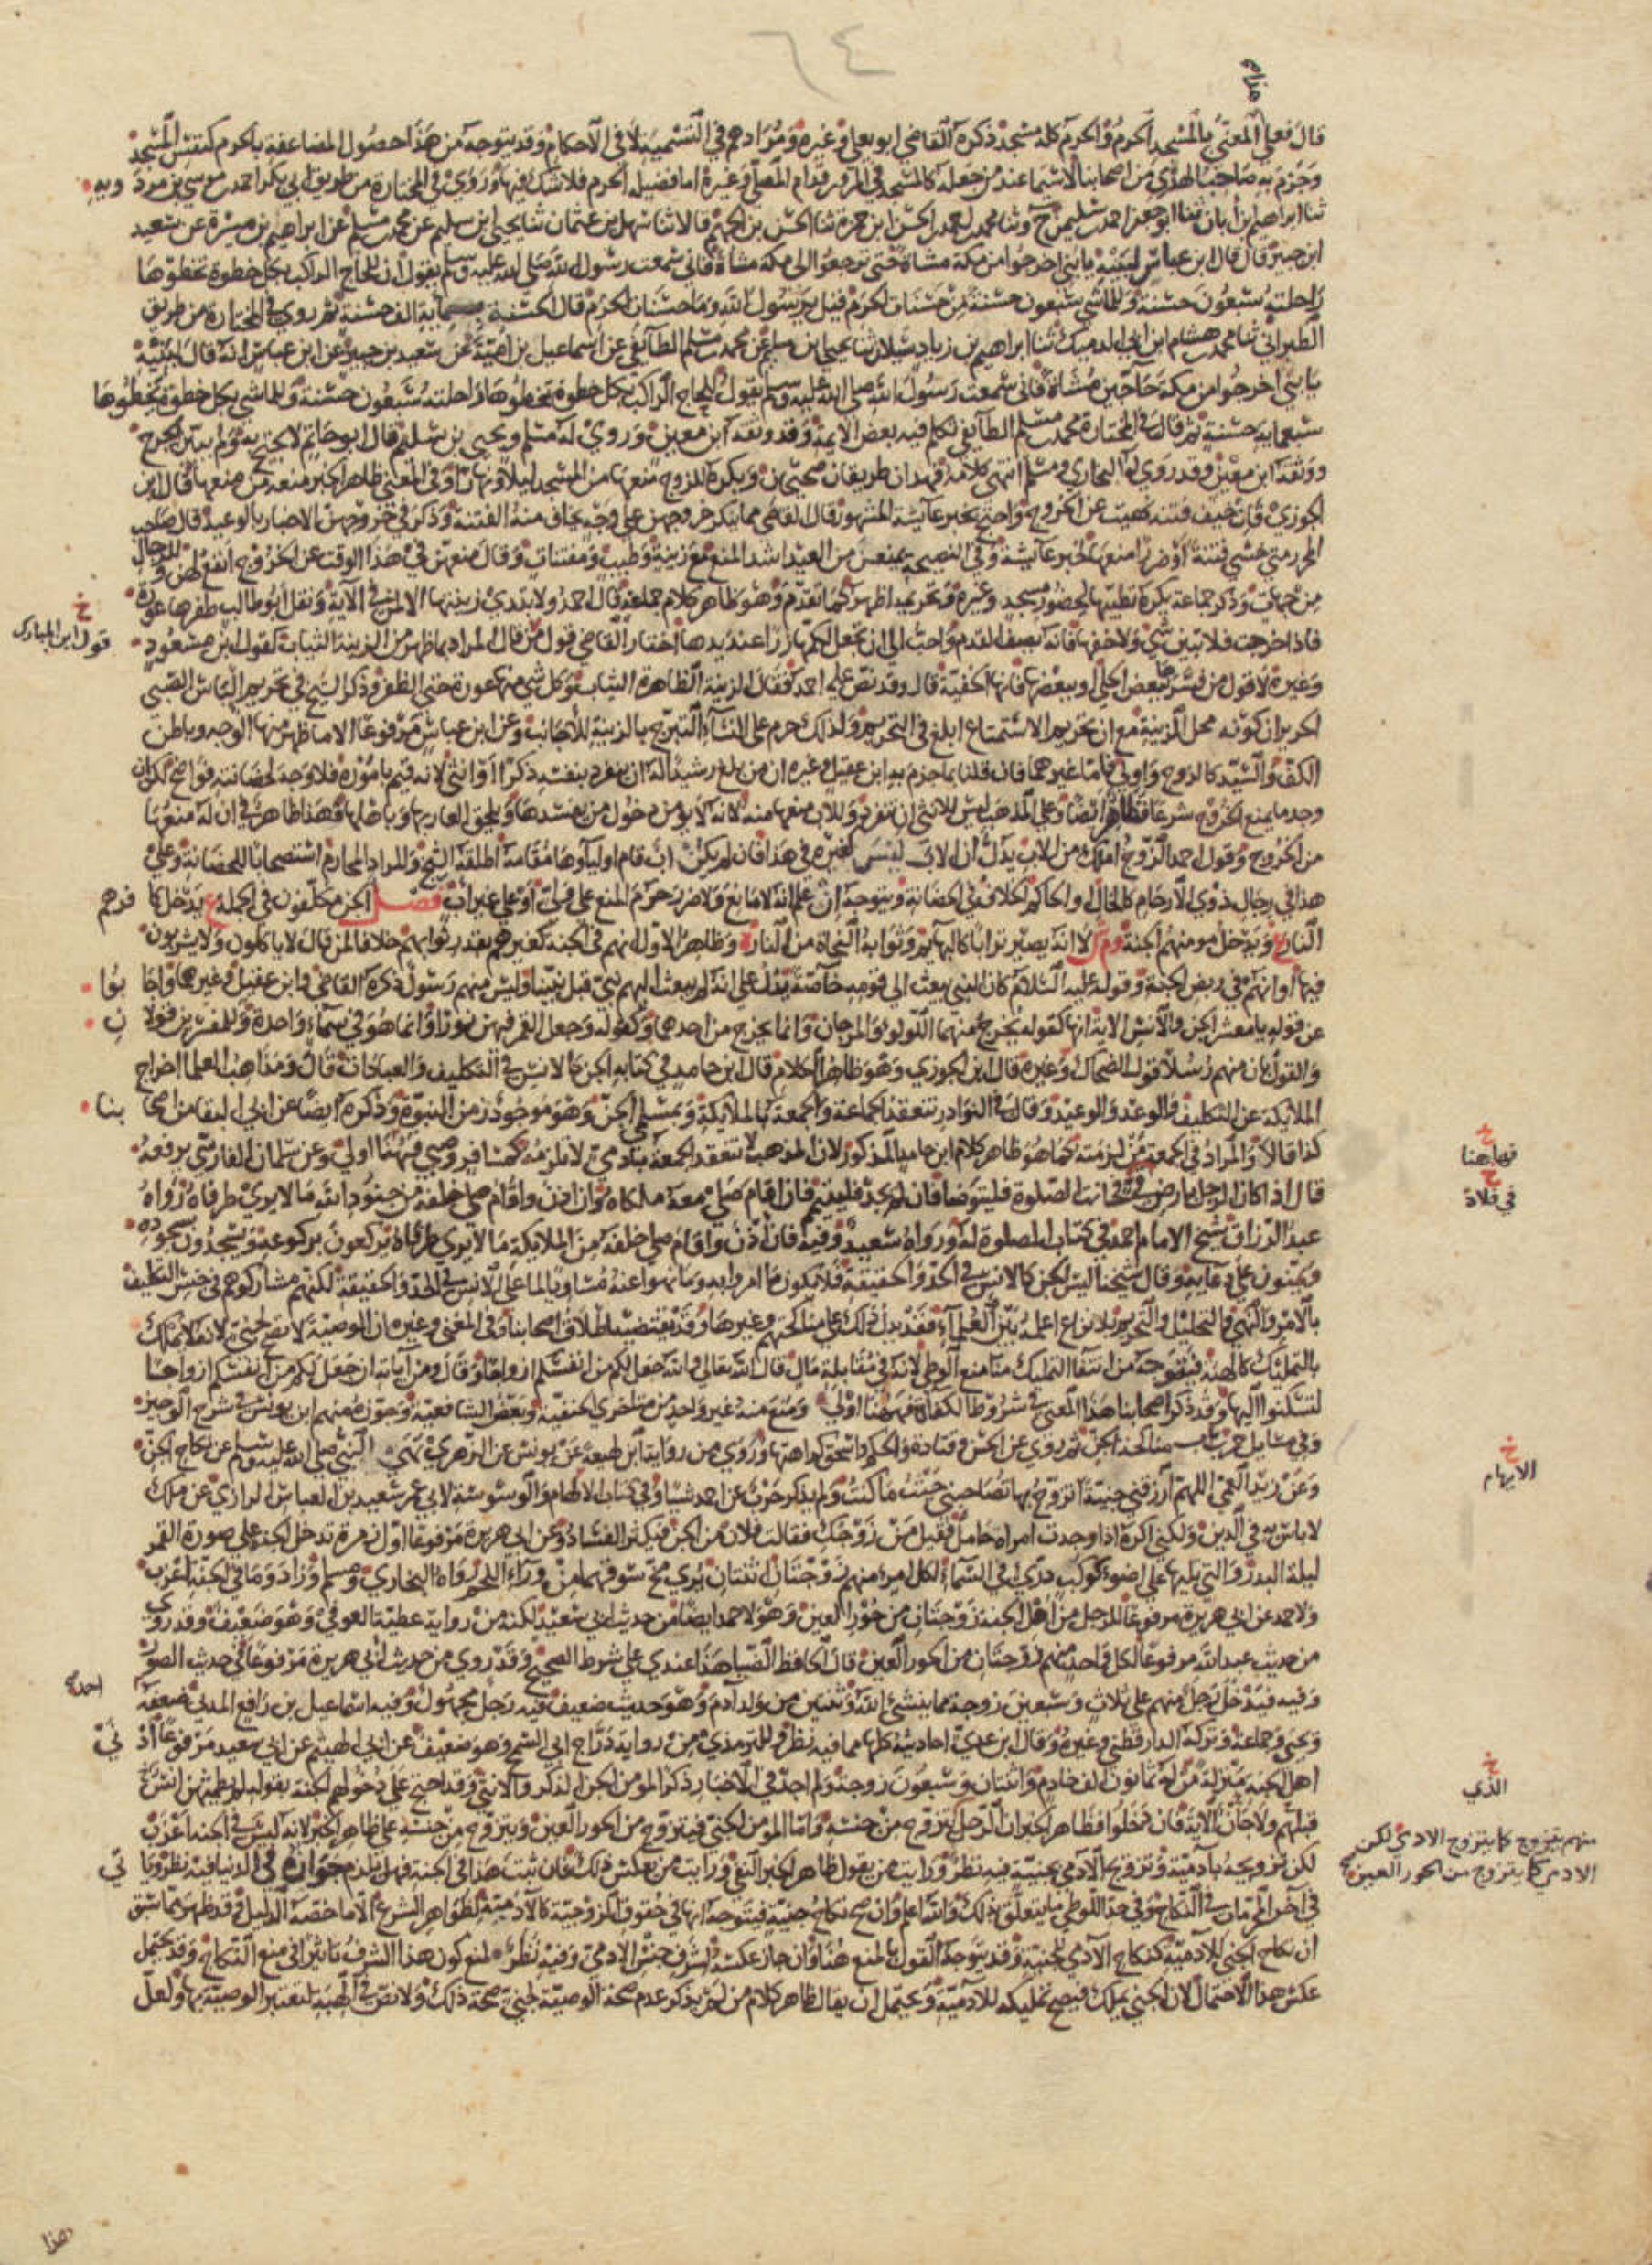 ٦٤
هذا
قال فعلى المعنى بالمسجد الحرم والحرم كله مسجد ذكره القاضي ابو يعلى وغيره ومرادهم في التسمية لا في الاحكام وقد يتوجه من هذا حصول المضاعفة بالحرم كنفس المسجد
وجزم به صاحب الهدي من اصحابنا لاسيما عند من جعله كالمسجد في المرور قدام المصلى وغيره اما فضيلة الحرم فلا شك فيها وروي في المختارة من طريق ابي بكر احمد بن موسى بن مردويه
ثنا ابراهيم بن أبان ثنا ابو جعفر احمد بن سليمن ح وثنا محمد احمد الحسن ابن حمزة ثنا الحسن بن الجهم قالا ثنا سهل بن عثمان ثنا يحيى ابن سليم عن محمد بن مسلم عن ابراهيم بن ميسرة عن سعيد
ابن جبير قال قال ابن عباس لبنيه يا بني اخرجوا من مكة مشاة حتى ترجعوا الى مكة مشاة فاني سمعت رسول الله صلى الله عليه وسلم يقول ان للحاج الراكب بكل خطوة تخطوها
راحلته سبعون حسنة وللماشي سبعون حسنة من حسنات الحرم قيل يا رسول الله وما حسنات الحرم قال الحسنة بماية الف حسنة ثم روى في المختارة من طريق
الطبراني ثنا محمد بن هشام ابن ابي الدميك ثنا ابراهيم بن زياد سبلان ثنا يحيى بن سليم عن محمد بن مسلم الطائفي عن اسماعيل بن امية عن سعيد بن جبير عن ابن عباس انه قال لبنيه
يا بني اخرجوا من مكة حاجين مشاة فاني سمعت رسول الله صلى الله عليه وسلم يقول للحاج الراكب بكل خطوة تخطوها راحلته سبعون حسنة وللماشي بكل خطوة يخطوها
سبعماية حسنة ثم قال في المختارة محمد بن مسلم الطائفي تكلم فيه بعض الايمة وقد وثقه ابن معين وروى له مسلم ويحيى بن سليم قال ابو حاتم لا يحتج به ولم يبين الجرح
ووثقه ابن معين وقد روى له البخاري ومسلم انتهى كلامه فهذان طريقان صحيحان ويكره للزوج منعها من المسجد ليلا ونهارا وفي المغني ظاهر الخبر منعه من منعها قال ابن
الجوزي فان خيف فتنة نهيت عن الخروج واحتج بخبر عايشة المشهور قال القاضي مما ينكر خروجهن على وجه يخاف منه الفتنة وذكر في خروجهن الاخبار بالوعيد قال صاحب
المحرر متى خشي فتنة أو ضررا منعها لخبر عائشة وفي النصيحة يمنعن من العيد اشد المنع مع زينة وطيب ومفتنات وقال منعهن في هذا الوقت عن الخروج انفع لهن وللرجال
من جهات وذكر جماعة يكره تطيبها لحضور مسجد وغيره وتحريمه اظهر كما تقدم وهو ظاهر كلام جماعة قال احمد ولا تبدي زينتها الا لمن في الآية ونقل ابو طالب ظفرها عورة
فاذا خرجت فلا تبين شيا ولا خفها فانه يصف القدم واحب الي ان تجعل لكمها زرا عند يدها اختار القاضي قول من قال المراد بما ظهر من الزينة الثياب كقول ابن مسعود
خ
قول ابن المبارك
وغيره لا قول من فسرها ببعض الحلي وببعضها فانها الخفية قال وقد نص عليه احمد فقال الزينة الظاهرة الثياب وكل شي منها عورة حتى الظفر وذكر الشيخ في تحريم الباس الصبي
الحرير ان كونه محل الزينة مع ان تحريم الاستمتاع ابلغ في التحريم ولذلك حرم على النساء التبرج بالزينة للاجانب وعن ابن عباس مرفوعا الا ما ظهر منها الوجه وباطن
الكف والسيد كالزوج واولى واما غيرهما فان قلنا بما جزم به ابن عقيل وغيره ان من بلغ رشيدا له ان ينفرد بنفسه ذكرا او انثى لانه قيم باموره فلا وجه لحضانته فواضح لكن ان
وجد ما يمنع الخروج شرعا فظاهر ايضا وعلى المذهب ليس للانثى ان تنفرد وللاب منعها منه لانه لا يؤمن دخول من يفسدها ويلحق العار بها وباهلها فهذا ظاهر في ان له منعها
من الخروج وقول احمد الزوج املك من الاب يدل أن الاب ليس كغيره في هذا فان لم يكن اب قام اولياوها مقامه اطلقه الشيخ والمراد المحارم استصحابا للحضانة وعلى
هذا في رجال ذوي الارحام كالخال والحاكم الخلاف في الحضانة ويتوجه ان علم انه لا مانع ولا ضرر حرم المنع على ولي أو على غير اب فصل الجن مكلفون في الجملة ع يدخل كافرهم
النار ع ويدخل مومنهم الجنة وم ش لا انه يصير ترابا كالبهايم وثوابه النجاة من النار ه وظاهر الاول انهم في الجنة كغيرهم بقدر ثوابهم خلافا لمن قال لا ياكلون ولا يشربون
فيها أو انهم في ربض الجنة وقوله عليه السلام كان النبي يبعث الى قومه خاصة يدل على انه لم يبعث اليهم نبي قبل نبينا وليس منهم رسول ذكره القاضي وابن عقيل وغيرهما واجابوا
عن قوله يامعشر الجن والانس الاية انها كقوله يخرج منهما اللؤلؤ والمرجان وانما يخرج من احدهما وكقوله وجعل القمر فيهن نورا وانما هو في سماء واحدة وللمفسرين قولان
والقول بان منهم رسلا قول الضحاك وغيره قال ابن الجوزي وهو ظاهر الكلام قال ابن حامد في كتابه الجن كالانس في التكليف والعبادات قال ومذاهب العلما اخراج
الملايكة عن التكليف والوعد والوعيد وقال في النوادر تنعقد الجماعة والجمعة بالملايكة وبمسلمي الجن وهو موجود زمن النبوة وذكره ايضا عن ابي البقا من اصحابنا
كذا قالا والمراد في الجمعة من لزمته كما هو ظاهر كلام ابن حامد المذكور لان المذهب لا تنعقد الجمعة بآدمي لا تلزمه كمسافر وصبي فههنا اولى وعن سلمان الفارسي يرفعه
خ
فهاهنا
قال اذا كان الرجل بارض في فحانت الصلوة فليتوضا فان لم يجد فليتيمم فان اقام صلى معه ملكاه وان اذن واقام صلى خلفه من جنود الله ما لا يرى طرفاه رواه
خ
في فلاة
عبد الرزاق شيخ الامام احمد في كتاب الصلوة له ورواه سعيد وفيه فان أذن واقام صلى خلفه من الملايكة ما لا يرى طرفاه يركعون بركوعه ويسجدون بسجوده
ويؤمنون على دعايه وقال شيخنا ليس الجن كالانس في الحد والحقيقة فلا يكون ما امروا به وما نهوا عنه مساويا لما على الانس في الحد والحقيقة لكنهم مشاركوهم في جنس التكليف
بالامر والنهي والتحليل والتحريم بلا نزاع اعلمه بين العلماء فقد يدل ذلك على مناكحتهم وغيرها وقد يقتضيه اطلاق اصحابنا وفي المغني وغيره ان الوصية لا تصح لجني لانه لا يملك
بالتمليك كالهبة فيتوجه من انتفا التمليك منا منع الوطي لانه في مقابلة مال قال الله تعالى والله جعل لكم من انفسكم ازواجا وقال ومن آياته ان جعل لكم من انفسكم ازواجا
لتسكنوا اليها وقد ذكر اصحابنا هذا المعنى في شروط الكفاءة فههنا اولى ومنع منه غير واحد من متاخري الحنفية وبعض الشافعية وجوزه منهم ابن يونس في شرح الوجيز
وفي مسايل حرب باب مناكحة الجن ثم روى عن الحسن وقتادة والحكم واسحق كراهتها وروى من رواية ابن لهيعة عن يونس عن الزهري نهى النبي صلى الله عليه وسلم عن نكاح الجن
وعن زيد العمى اللهم ارزقني جنية اتزوج بها تصاحبني حيث ما كنت ولم يذكر حرب عن احمد شيا وفي كتاب الالهام والوسوسة لابي عمر سعيد بن العباس الرازي عن ملك
خ
الابهام
لا باس به في الدين ولكني اكره اذا وجدت امراة حامل فقيل من زوجك فقالت فلان من الجن فيكثر الفساد وعن ابي هريرة مرفوعا اول زمرة تدخل الجنة على صورة القمر
ليلة البدر والتي تليها على اضوء كوكب دري في السماء لكل امرء منهم زوجتان اثنتان يرى مخ سوقهما من وراء اللحم رواه البخاري ومسلم وزاد وما في الجنة اعزب
ولاحمد عن ابي هريرة مرفوعا للرجل من اهل الجنة زوجتان من حور العين وهو لاحمد ايضا من حديث ابي سعيد لكنه من رواية عطية العوفي وهو ضعيف وقد روي
من حديث عبد الله مرفوعا لكل واحد منهم زوجتان من الحور العين قال الحافظ الضيا هذا عندي على شرط الصحيح وقد روي من حديث أبي هريرة مرفوعا في حديث الصور
وفيه فيدخل رجل منهم على ثلاث وسبعين زوجة مما ينشئ الله وثنتين من ولد آدم وهو حديث ضعيف فيه رجل مجهول وفيه اسماعيل بن رافع المدني ضعفه احمد
ويحيى وجماعة وتركه الدارقطني وغيره وقال ابن عدي احاديثه كلها مما فيه نظر وللترمذي من رواية دراج ابي السمح وهو ضعيف عن ابي الهيثم عن ابي سعيد مرفوعا أدنى
اهل الجنة منزلة من له ثمانون الف خادم واثنتان وسبعون زوجة ولم اجد في الاخبار ذكر المؤمن الجن الذكر والانثى وقد احتج على دخولهم الجنة بقوله لم يطمثهن انس
خ
الذي
قبلهم ولا جان الآية فان دخلوا فظاهر الخبر ان الرجل يتزوج من جنسه واما المؤمن الجني فيتزوج من الحور العين ويتزوج من جنسه على ظاهر الخبر لانه ليس في الجنة اعزب
منهم يتزوج كما يتزوج الادمي لكن
الادمي كما يتزوج من الحور العين
لكن تزويجه بآدمية وتزويج الآدمي بجنية فيه نظر ورايت من يقول ظاهر الخبر النفي ورايت من يعكس ذلك فان ثبت هذا في الجنة فهل يلزم جوازه في الدنيا فيه نظر وياتي
في آخر المحرمات في النكاح وفي حد اللوطي ما يتعلق بذلك والله اعلم وان صح نكاح جنية فيتوجه انها في حقوق الزوجية كالآدمية لظواهر الشرع الا ما خصه الدليل وقد ظهر مما سبق
ان نكاح الجني للادمية كنكاح الآدمي للجنية وقد يتوجه القول بالمنع هنا وان جاز عكسه لشرف جنس الادمي وفيه نظر لمنع كون هذا الشرف تاثيرا في منع النكاح وقد يحتمل
عكس هذا الاحتمال لان الجني يملك فيصح تمليكه للادمية ويحتمل ان يقال ظاهر كلام من لم يذكر عدم صحة الوصية لجني صحة ذلك ولا نص في الهبة لتعتبر الوصية بها ولعل
هذا